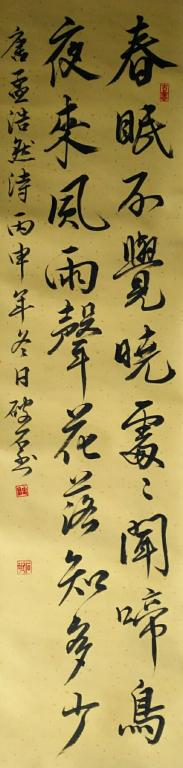 春眠不覺曉處〻聞啼鳥
夜來風雨聲花落知多少
唐孟浩然诗丙申年冬日破石书